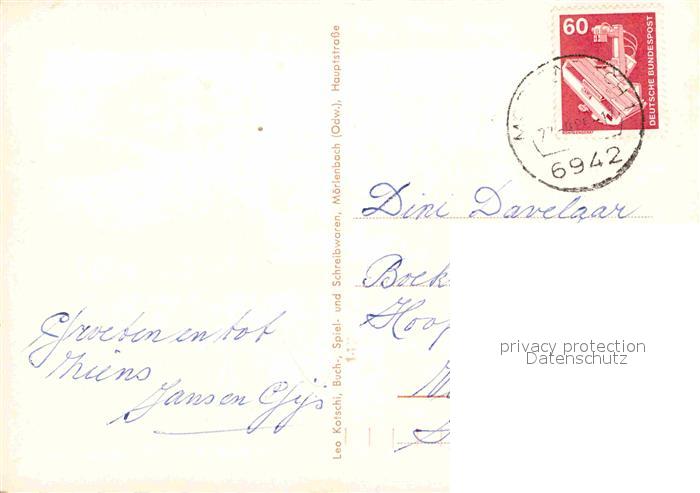 Groeten en tot
ziens
Jansen Gijs
Leo Kotschi, Buch-, Spiel- und Schreibwaren, Mörlenbach (Odw.), Hauptstraße
60
DEUTSCHE BUNDESPOST
6942
Dini Davelaar
privacy protection
Datenschutz